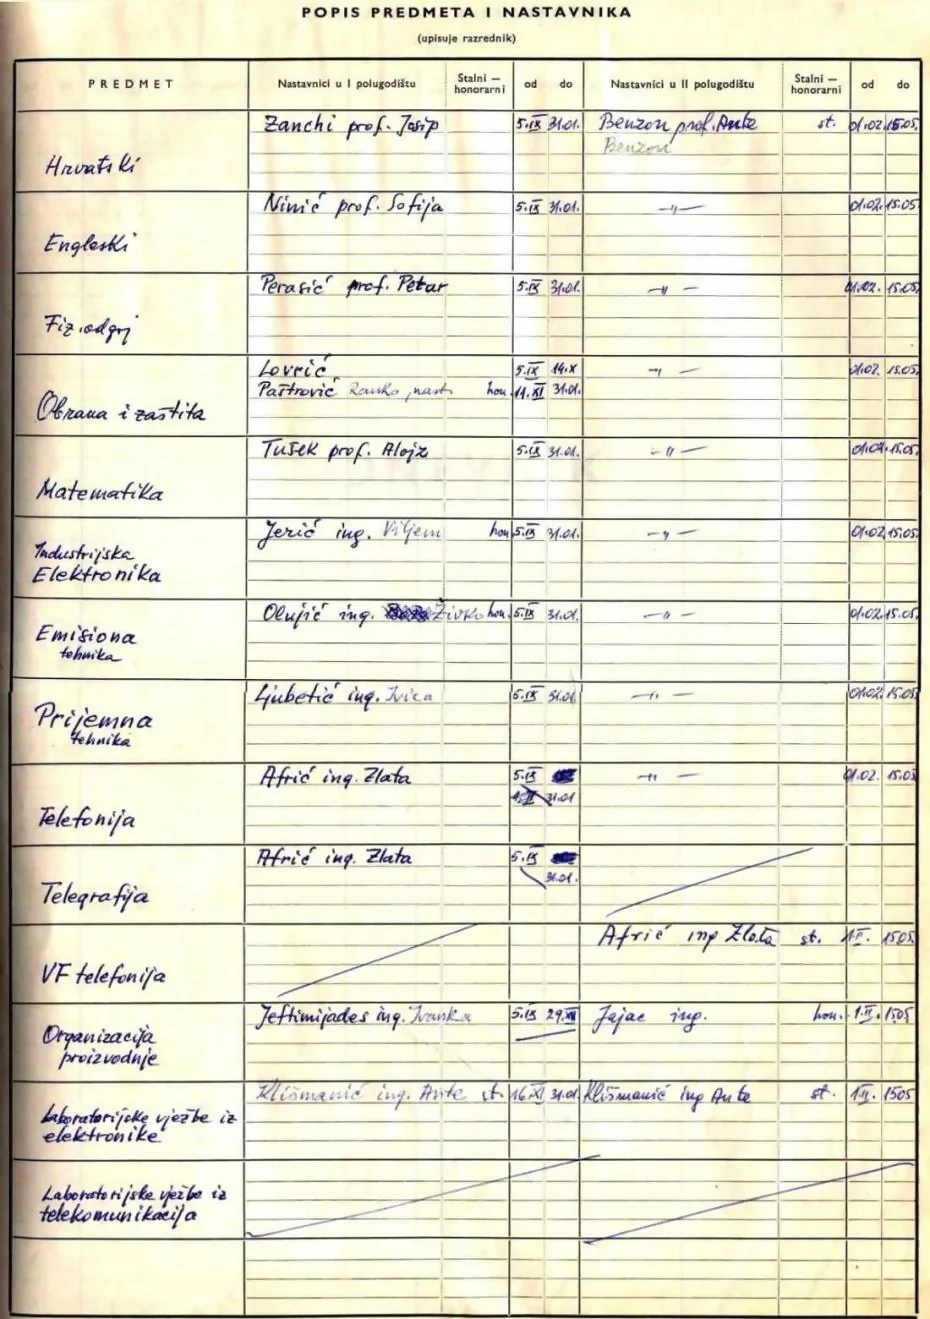 POPIS PREDMETA I NASTAVNIKA
(upisuje razrednik)
PREDMET Nastavnici u I polugodištu Stalni — honorarni od do Nastavnici u II polugodištu Stalni — honorarni od do
Zanchi prof. Josip 5.IX 31.01. Benzon prof. Ante st. 01.02. 15.05.
Benzon
Hrvatski
Ninić prof. Sofija 5.IX 31.01. —"— 01.02. 15.05.
Engleski
Perasić prof. Petar 5.IX 31.01. —"— 01.02. 15.05.
Fiz.odgoj
Lovrić 5.IX 14.X —"— 01.02. 15.05.
Paštrović Ranko, nast. hon. 11.XI 31.01.
Obrana i zaštita
Tušek prof. Alojz 5.IX 31.01. —"— 01.02. 15.05.
Matematika
Jerić ing. Viljem hon. 5.IX 31.01. —"— 01.02. 15.05.
Industrijska
Elektronika
Olujić ing. Živko hon. 5.IX 31.01. —"— 01.02. 15.05.
Emisiona
tehnika
Ljubetić ing. Ivica 5.IX 31.01 —"— 01.02. 15.05.
Prijemna
tehnika
Afrić ing. Zlata 5.IX —"— 01.02. 15.05
31.01
Telefonija
Afrić ing. Zlata 5.IX
31.01.
Telegrafija
Afrić ing Zlata st. 1.II. 15.05.
VF telefonija
Jeftimijades ing. Ivanka 5.IX 29.XII Jajac ing. hon. 1.II. 15.05
Organizacija
proizvodnje
Klišmanić ing. Ante st. 16.XI 31.01. Klišmanić ing Ante st. 1.II. 1505
Laboratorijske vježbe iz
elektronike
Laboratorijske vježbe iz
telekomunikacija